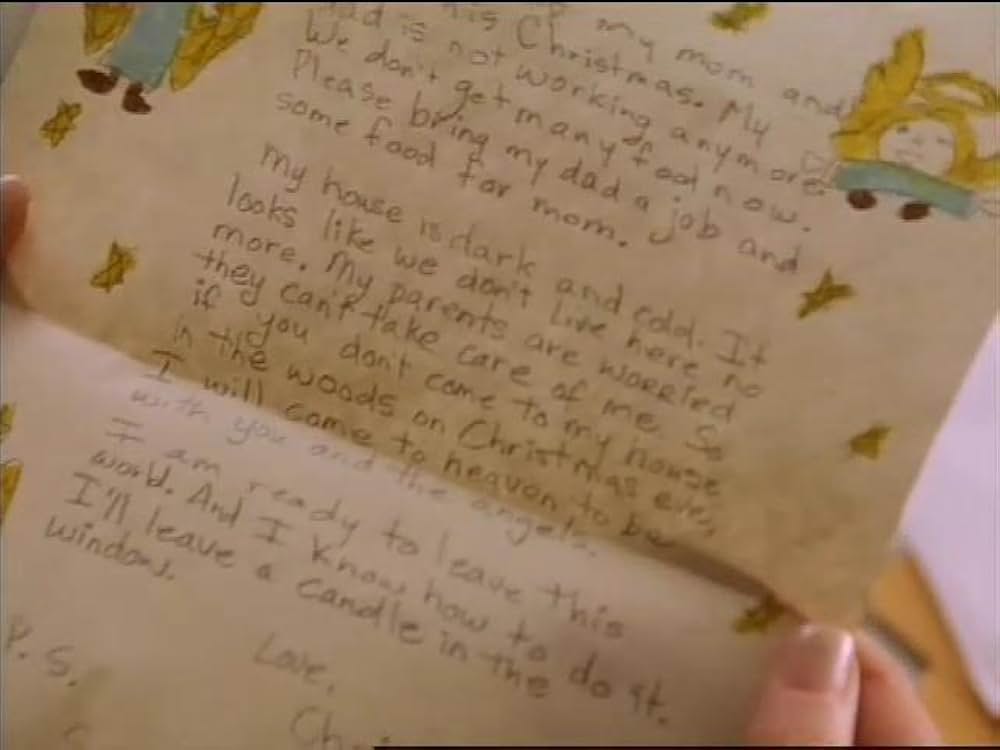 my mom and
dad this Christmas. My
dad is not working anymore.
We don't get many food now.
Please bring my dad a job and
some food for mom.
My house is dark and cold. It
looks like we don't live here no
more. My parents are worried
they can't take care of me. So
if you don't come to my house
in the woods on Christmas eve,
I will come to heaven to be
with you and the angels.
I am ready to leave this
world. And I know how to do it.
I'll leave a candle in the
window.
Love,
P. S.